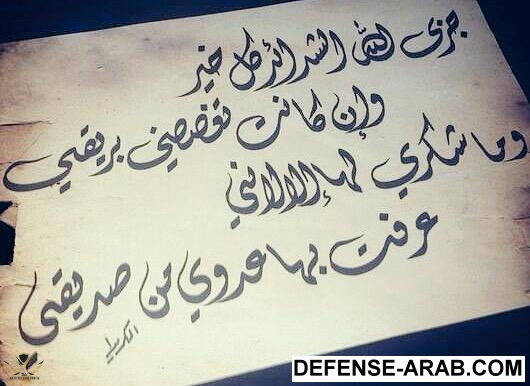 جزى الله الشدائد كل خير
وإن كانت تغصصني بريقي
وما شكري لها إلا لأنني
عرفت بها عدوي من صديقي
DEFENSE-ARAB.COM